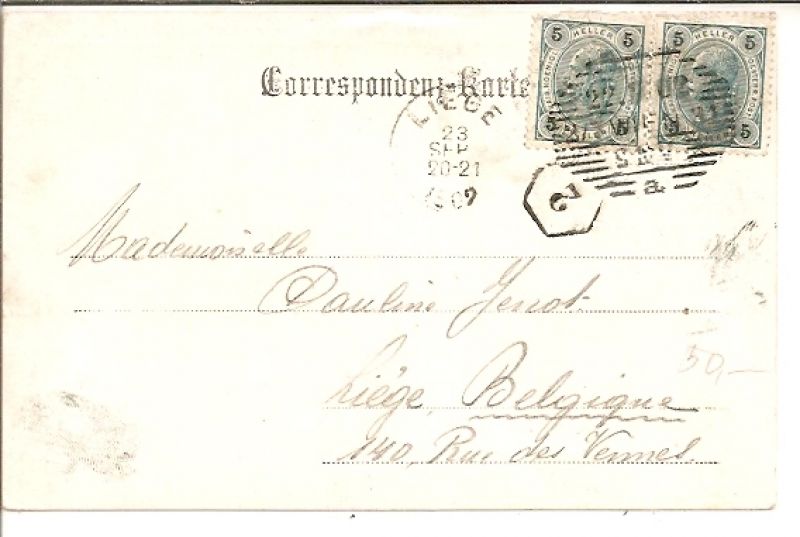 5 HELLER 5
5 HELLER 5
Correspondenz-Karte
LIEGE
23
SEPT
20-21
22
2
a
5 5
5 5
Mademoiselle
Pauline Genot
Liége, Belgique
140, Rue des Vennes
50,—